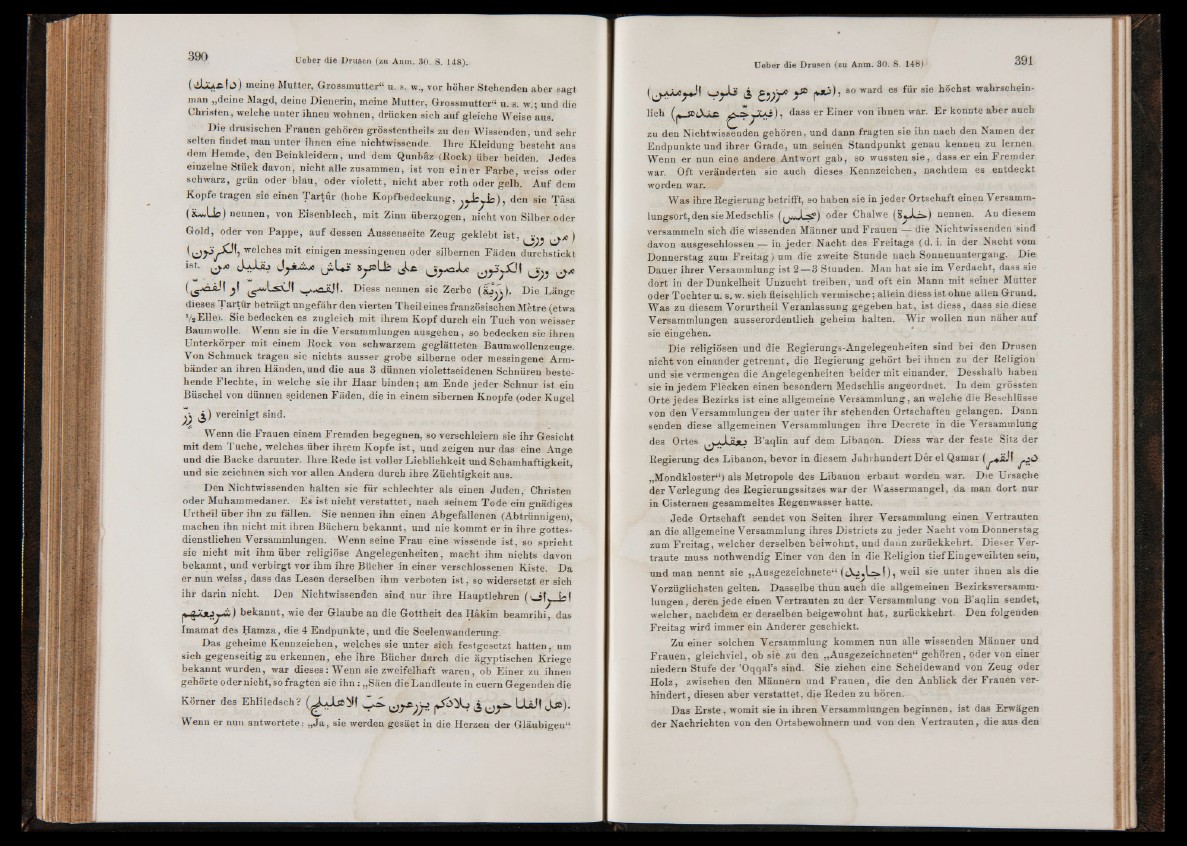 390
Ueber die Drusen (zu Anm. 30. S. 148).
(داعيتك) meine Mutter, Grossmutter“ u. s. w., vor höher Stehenden aber sagt
man „deine Magd, deine Dienerin, meine Mutter, Grossmutter“ u. s. w.; und die
Christen, welche unter ihnen wohnen, drücken sich auf gleiche Weise aus.
Die drusischen Frauen gehören grösstentheils zu den Wissenden, und sehr
selten findet man unter ihnen eine nichtwissende. Ihre Kleidung besteht aus
dem Hemde, den Beinkleidern, und dem Qunbâz (Rock) über beiden. Jedes
einzelne Stück davon, nicht alle zusammen, ist von einer Farbe, weiss oder
schwarz, grün oder blau, oder violett, nicht aber roth oder gelb. Auf dem
Kopfe tragen sie einen Ṭarṭûr (hohe Kopfbedeckung, طرطور), den sie Ṭâsa
(طاسة) nennen, von Eisenblech, mit Zinn überzogen, nicht von Silber oder
Gold, oder von Pappe, auf dessen Aussenseite Zeug geklebt ist, (من ورق
الكرتون), welches mit einigen messingenen oder silbernen Fäden durchstickt
ist. من ورق الكرتون ملصوق على ظاهره قماش مشغول بقليل من
(القصب النحاسي او الفضي). Diess nennen sie Zerbe (زربة). Die Länge
dieses Ṭarṭûr beträgt ungefähr den vierten Theil eines französischen Mètre (etwa
½ Elle). Sie bedecken es zugleich mit ihrem Kopf durch ein Tuch von weisser
Baumwolle. Wenn sie in die Versammlungen ausgehen, so bedecken sie ihren
Unterkörper mit einem Rock von schwarzem geglätteten Baumwollenzeuge.
Von Schmuck tragen sie nichts ausser grobe silberne oder messingene Arm-
bänder an ihren Händen, und die aus 3 dünnen violettseidenen Schnüren beste-
hende Flechte, in welche sie ihr Haar binden; am Ende jeder Schnur ist ein
Büschel von dünnen seidenen Fäden, die in einem sibernen Knopfe (oder Kugel
في زر) vereinigt sind.
Wenn die Frauen einem Fremden begegnen, so verschleiern sie ihr Gesicht
mit dem Tuche, welches über ihrem Kopfe ist, und zeigen nur das eine Auge
und die Backe darunter. Ihre Rede ist voller Lieblichkeit und Schamhaftigkeit,
und sie zeichnen sich vor allen Andern durch ihre Züchtigkeit aus.
Den Nichtwissenden halten sie für schlechter als einen Juden, Christen
oder Muhammedaner. Es ist nicht verstattet, nach seinem Tode ein gnädiges
Urtheil über ihn zu fällen. Sie nennen ihn einen Abgefallenen (Abtrünnigen),
machen ihn nicht mit ihren Büchern bekannt, und nie kommt er in ihre gottes-
dienstlichen Versammlungen. Wenn seine Frau eine wissende ist, so spricht
sie nicht mit ihm über religiöse Angelegenheiten, macht ihm nichts davon
bekannt, und verbirgt vor ihm ihre Bücher in einer verschlossenen Kiste. Da
er nun weiss, dass das Lesen derselben ihm verboten ist, so widersetzt er sich
ihr darin nicht. Den Nichtwissenden sind nur ihre Hauptlehren (اطراف
شريعتهم) bekannt, wie der Glaube an die Gottheit des Ḥâkim beamrihi, das
Imamat des Ḥamza, die 4 Endpunkte, und die Seelenwanderung.
Das geheime Kennzeichen, welches sie unter sich festgesetzt hatten, um
sich gegenseitig zu erkennen, ehe ihre Bücher durch die ägyptischen Kriege
bekannt wurden, war dieses: Wenn sie zweifelhaft waren, ob Einer zu ihnen
gehörte oder nicht, so fragten sie ihn: „Säen die Landleute in euern Gegenden die
Körner des Ehliledsch? (هل الفلاحون في بلادكم يزرعون حب الاهليلج).
Wenn er nun antwortete: „Ja, sie werden gesäet in die Herzen der Gläubigen“
Ueber die Drusen (zu Anm. 30. S. 148)
391
(نعم هو مزروع في قلوب المومنين), so ward es für sie höchst wahrschein-
lich (فيترجح عندهم), dass er Einer von ihnen war. Er konnte aber auch
zu den Nichtwissenden gehören, und dann fragten sie ihn nach den Namen der
Endpunkte und ihrer Grade, um seinen Standpunkt genau kennen zu lernen.
Wenn er nun eine andere Antwort gab, so wussten sie, dass er ein Fremder
war. Oft veränderten sie auch dieses Kennzeichen, nachdem es entdeckt
worden war.
Was ihre Regierung betrifft, so haben sie in jeder Ortschaft einen Versamm-
lungsort, den sie Medschlis (مجلس) oder Chalwe (خلوة) nennen. An diesem
versammeln sich die wissenden Männer und Frauen — die Nichtwissenden sind
davon ausgeschlossen — in jeder Nacht des Freitags (d. i. in der Nacht vom
Donnerstag zum Freitag) um die zweite Stunde nach Sonnenuntergang. Die
Dauer ihrer Versammlung ist 2—3 Stunden. Man hat sie im Verdacht, dass sie
dort in der Dunkelheit Unzucht treiben, und oft ein Mann mit seiner Mutter
oder Tochter u. s. w. sich fleischlich vermische; allein diess ist ohne allen Grund.
Was zu diesem Vorurtheil Veranlassung gegeben hat, ist diess, dass sie diese
Versammlungen ausserordentlich geheim halten. Wir wollen nun näher auf
sie eingehen.
Die religiösen und die Regierungs-Angelegenheiten sind bei den Drusen
nicht von einander getrennt, die Regierung gehört bei ihnen zu der Religion
und sie vermengen die Angelegenheiten beider mit einander. Desshalb haben
sie in jedem Flecken einen besondern Medschlis angeordnet. In dem grössten
Orte jedes Bezirks ist eine allgemeine Versammlung, an welche die Beschlüsse
von den Versammlungen der unter ihr stehenden Ortschaften gelangen. Dann
senden diese allgemeinen Versammlungen ihre Decrete in die Versammlung
des Ortes بعقلين B'aqlîn auf dem Libanon. Diess war der feste Sitz der
Regierung des Libanon, bevor in diesem Jahrhundert Dêr el Qamar (دير القمر
„Mondkloster“) als Metropole des Libanon erbaut worden war. Die Ursache
der Verlegung des Regierungssitzes war der Wassermangel, da man dort nur
in Cisternen gesammeltes Regenwasser hatte.
Jede Ortschaft sendet von Seiten ihrer Versammlung einen Vertrauten
an die allgemeine Versammlung ihres Districts zu jeder Nacht vom Donnerstag
zum Freitag, welcher derselben beiwohnt, und dann zurückkehrt. Dieser Ver-
traute muss nothwendig Einer von den in die Religion tief Eingeweihten sein,
und man nennt sie „Ausgezeichnete“ (اجاويد), weil sie unter ihnen als die
Vorzüglichsten gelten. Dasselbe thun auch die allgemeinen Bezirksversamm-
lungen, deren jede einen Vertrauten zu der Versammlung von B'aqlin sendet,
welcher, nachdem er derselben beigewohnt hat, zurückkehrt. Den folgenden
Freitag wird immer ein Anderer geschickt.
Zu einer solchen Versammlung kommen nun alle wissenden Männer und
Frauen, gleichviel, ob sie zu den „Ausgezeichneten“ gehören, oder von einer
niedern Stufe der 'Oqqal's sind. Sie ziehen eine Scheidewand von Zeug oder
Holz, zwischen den Männern und Frauen, die den Anblick der Frauen ver-
hindert, diesen aber verstattet, die Reden zu hören.
Das Erste, womit sie in ihren Versammlungen beginnen, ist das Erwägen
der Nachrichten von den Ortsbewohnern und von den Vertrauten, die aus den